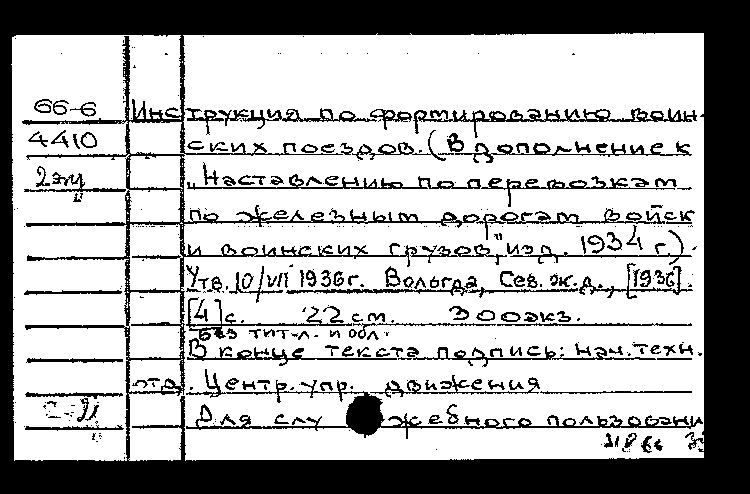 66-6 Инструкция по формированию воин-
4410 ских поездов. (В дополнение к
2эк „Наставлению по перевозкам
по железным дорогам войск
и воинских грузов," изд. 1934 г.).
Утв. 10/VII 1936г. Вологда, Сев. ж.д., [1936].
[4]с. 22 см. 300экз.
без тит. л. и обл.
В конце текста подпись: Нач. техн.
отд. Центр. упр. движения
Для служебного пользовани